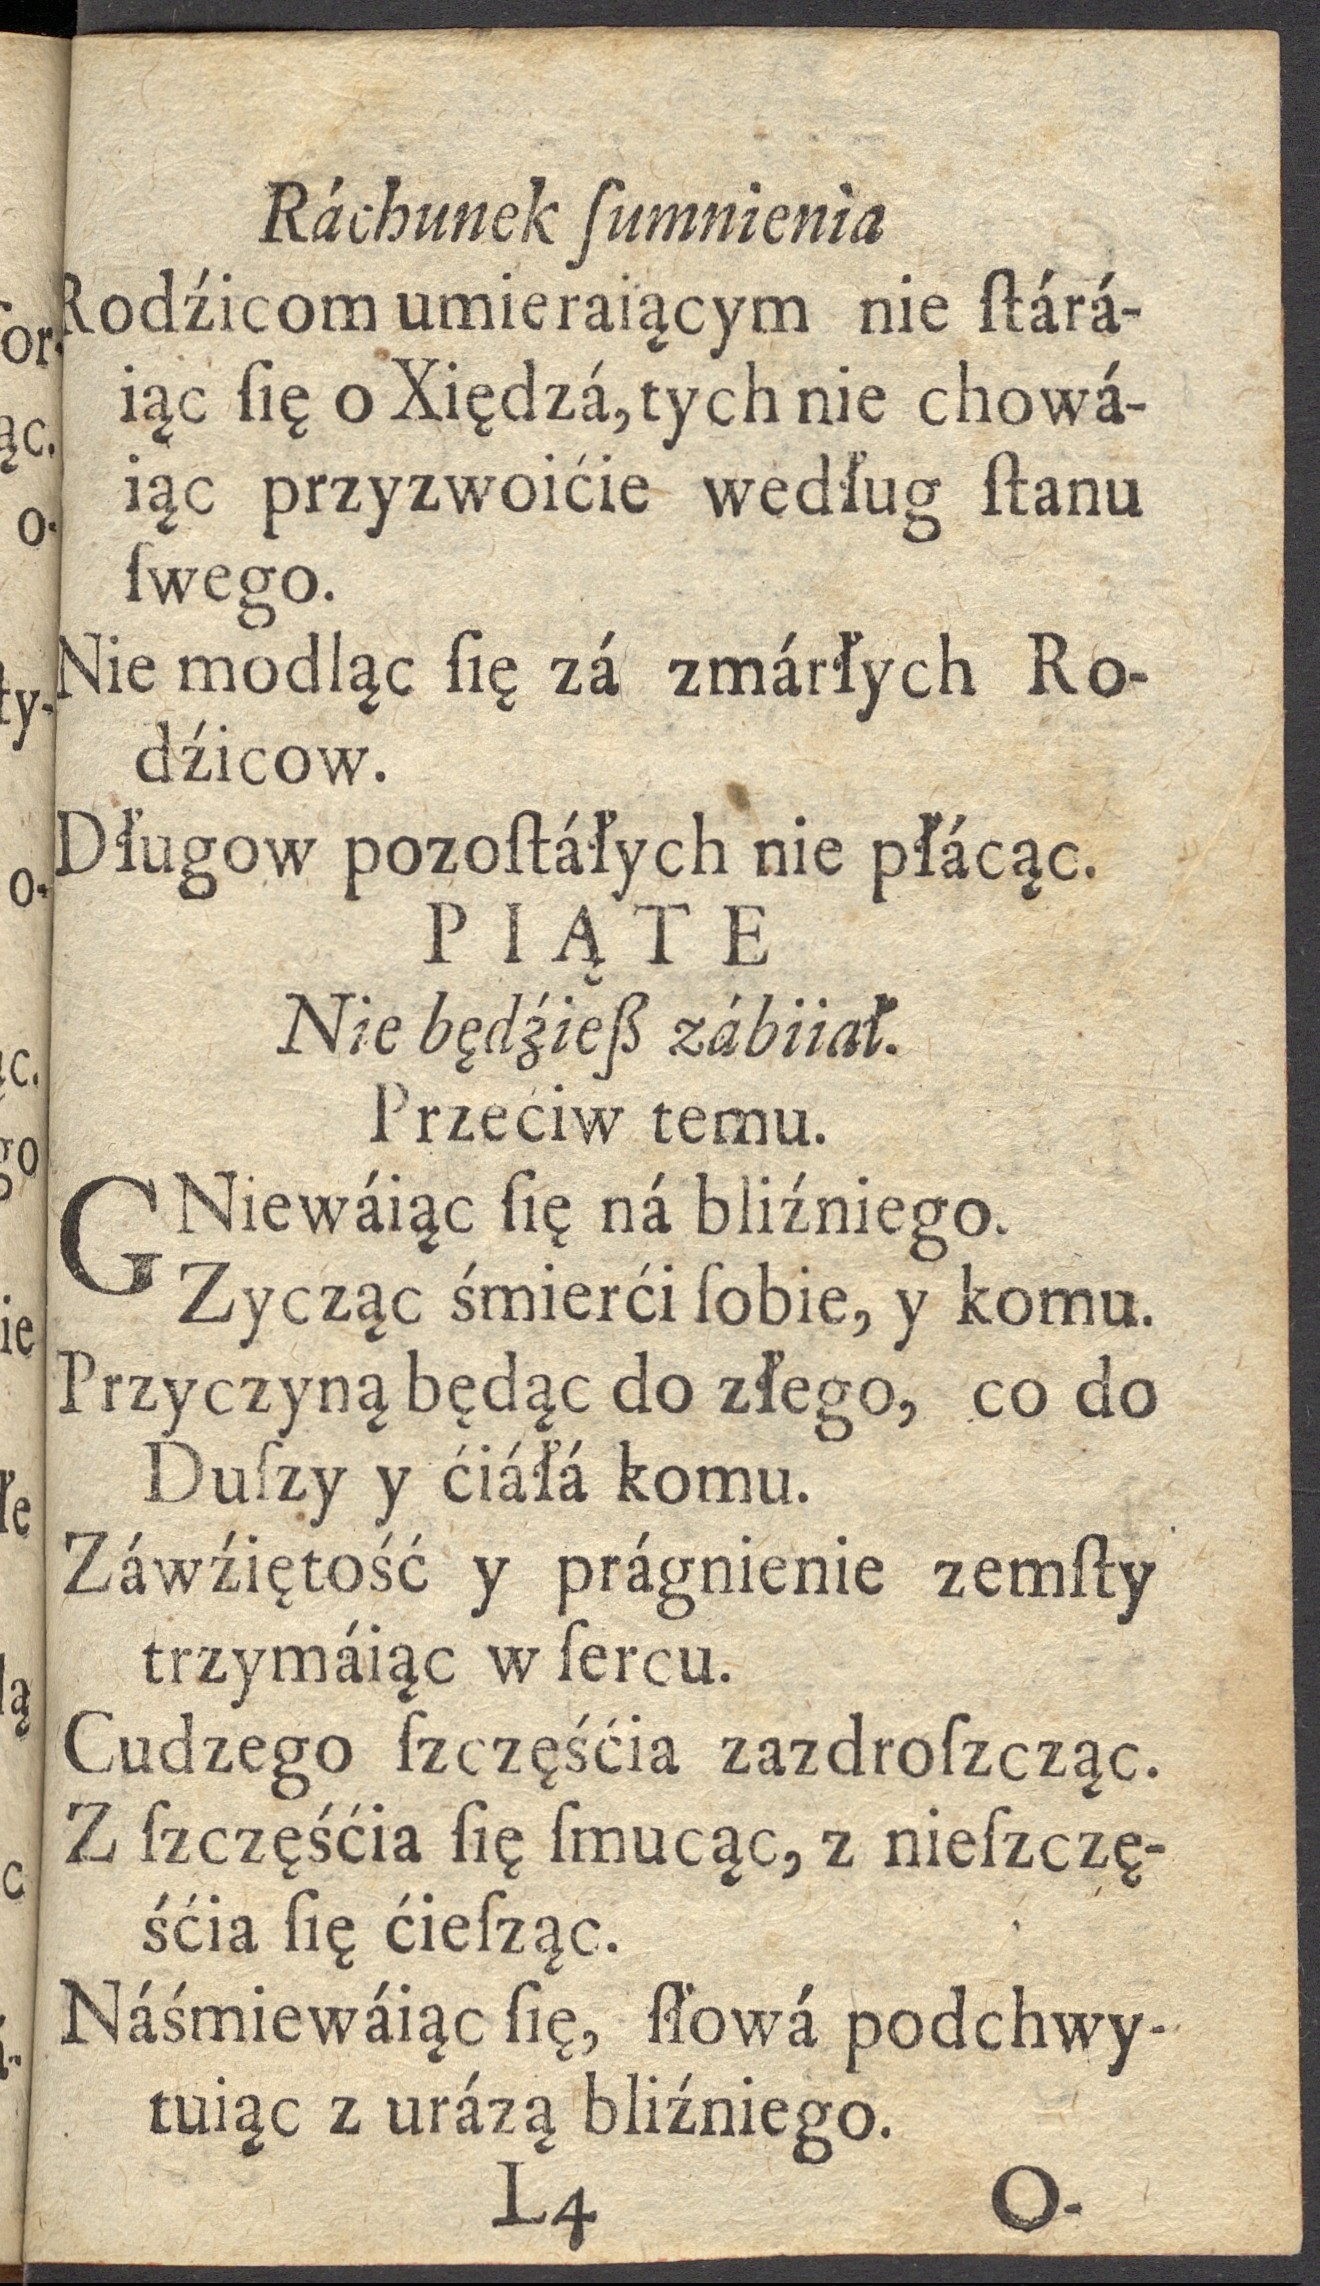 Ráchunek ſumnienia
Rodźicom umieraiącym nie ſtárá-
iąc ſię o Xiędzá, tych nie chowá-
iąc przyzwoićie według ſtanu
ſwego.
Nie modląc ſię zá zmárłych Ro-
dźicow.
Długow pozoſtáłych nie płácąc.
PIĄTE
Nie będźieß zábiiał.
Przećiw temu.
GNiewáiąc ſię ná bliźniego.
Zycząc śmierći ſobie, y komu.
Przyczyną będąc do złego, co do
Duſzy y ćiáłá komu.
Záwźiętość y prágnienie zemſty
trzymáiąc w ſercu.
Cudzego ſzczęśćia zazdroſzcząc.
Z ſzczęśćia ſię ſmucąc, z nieſzczę-
śćia ſię ćieſząc.
Náśmiewáiąc ſię, ſłowá podchwy-
tuiąc z urázą bliźniego.
L4 O-